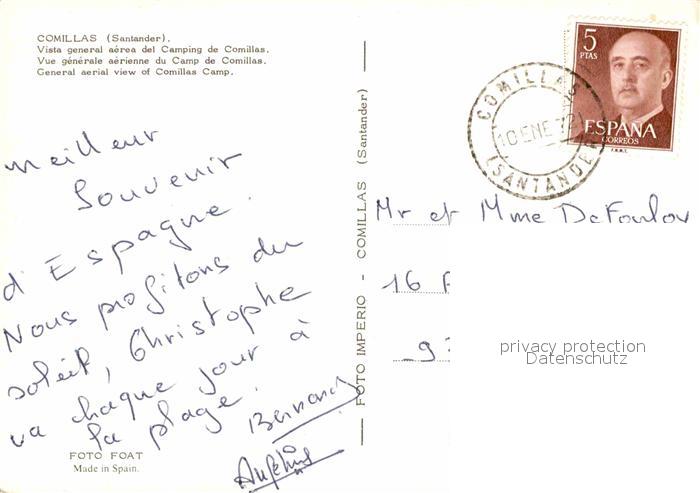 COMILLAS (Santander).
Vista general aérea del Camping de Comillas.
Vue générale aérienne du Camp de Comillas.
General aerial view of Comillas Camp.
meilleur
Souvenir
d'Espagne.
Nous profitons du
soleil, Christophe
va chaque jour à
la plage.
Bernard
FOTO FOAT
Made in Spain.
FOTO IMPERIO - COMILLAS (Santander)
5
PTAS
ESPAÑA
CORREOS
F.N.M.T.
COMILLAS
10 ENE 72
(SANTANDER)
Mr et Mme DeFoulov
16
privacy protection
Datenschutz